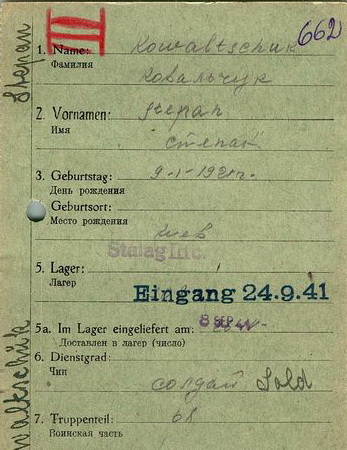 III
662
1. Name: Kowaltschuk
Фамилия
Ковальчук
2. Vornamen: Stepan
Имя
Степан
3. Geburtstag: 9-I-1921г.
День рождения
Geburtsort:
Место рождения
Киев
Stalag II C.
5. Lager:
Лагерь
Eingang 24.9.41
5a. Im Lager eingeliefert am:
Доставлен в лагерь (число)
6. Dienstgrad:
Чин
солдат Sold
7. Truppenteil: 68
Воинская часть
Stepan